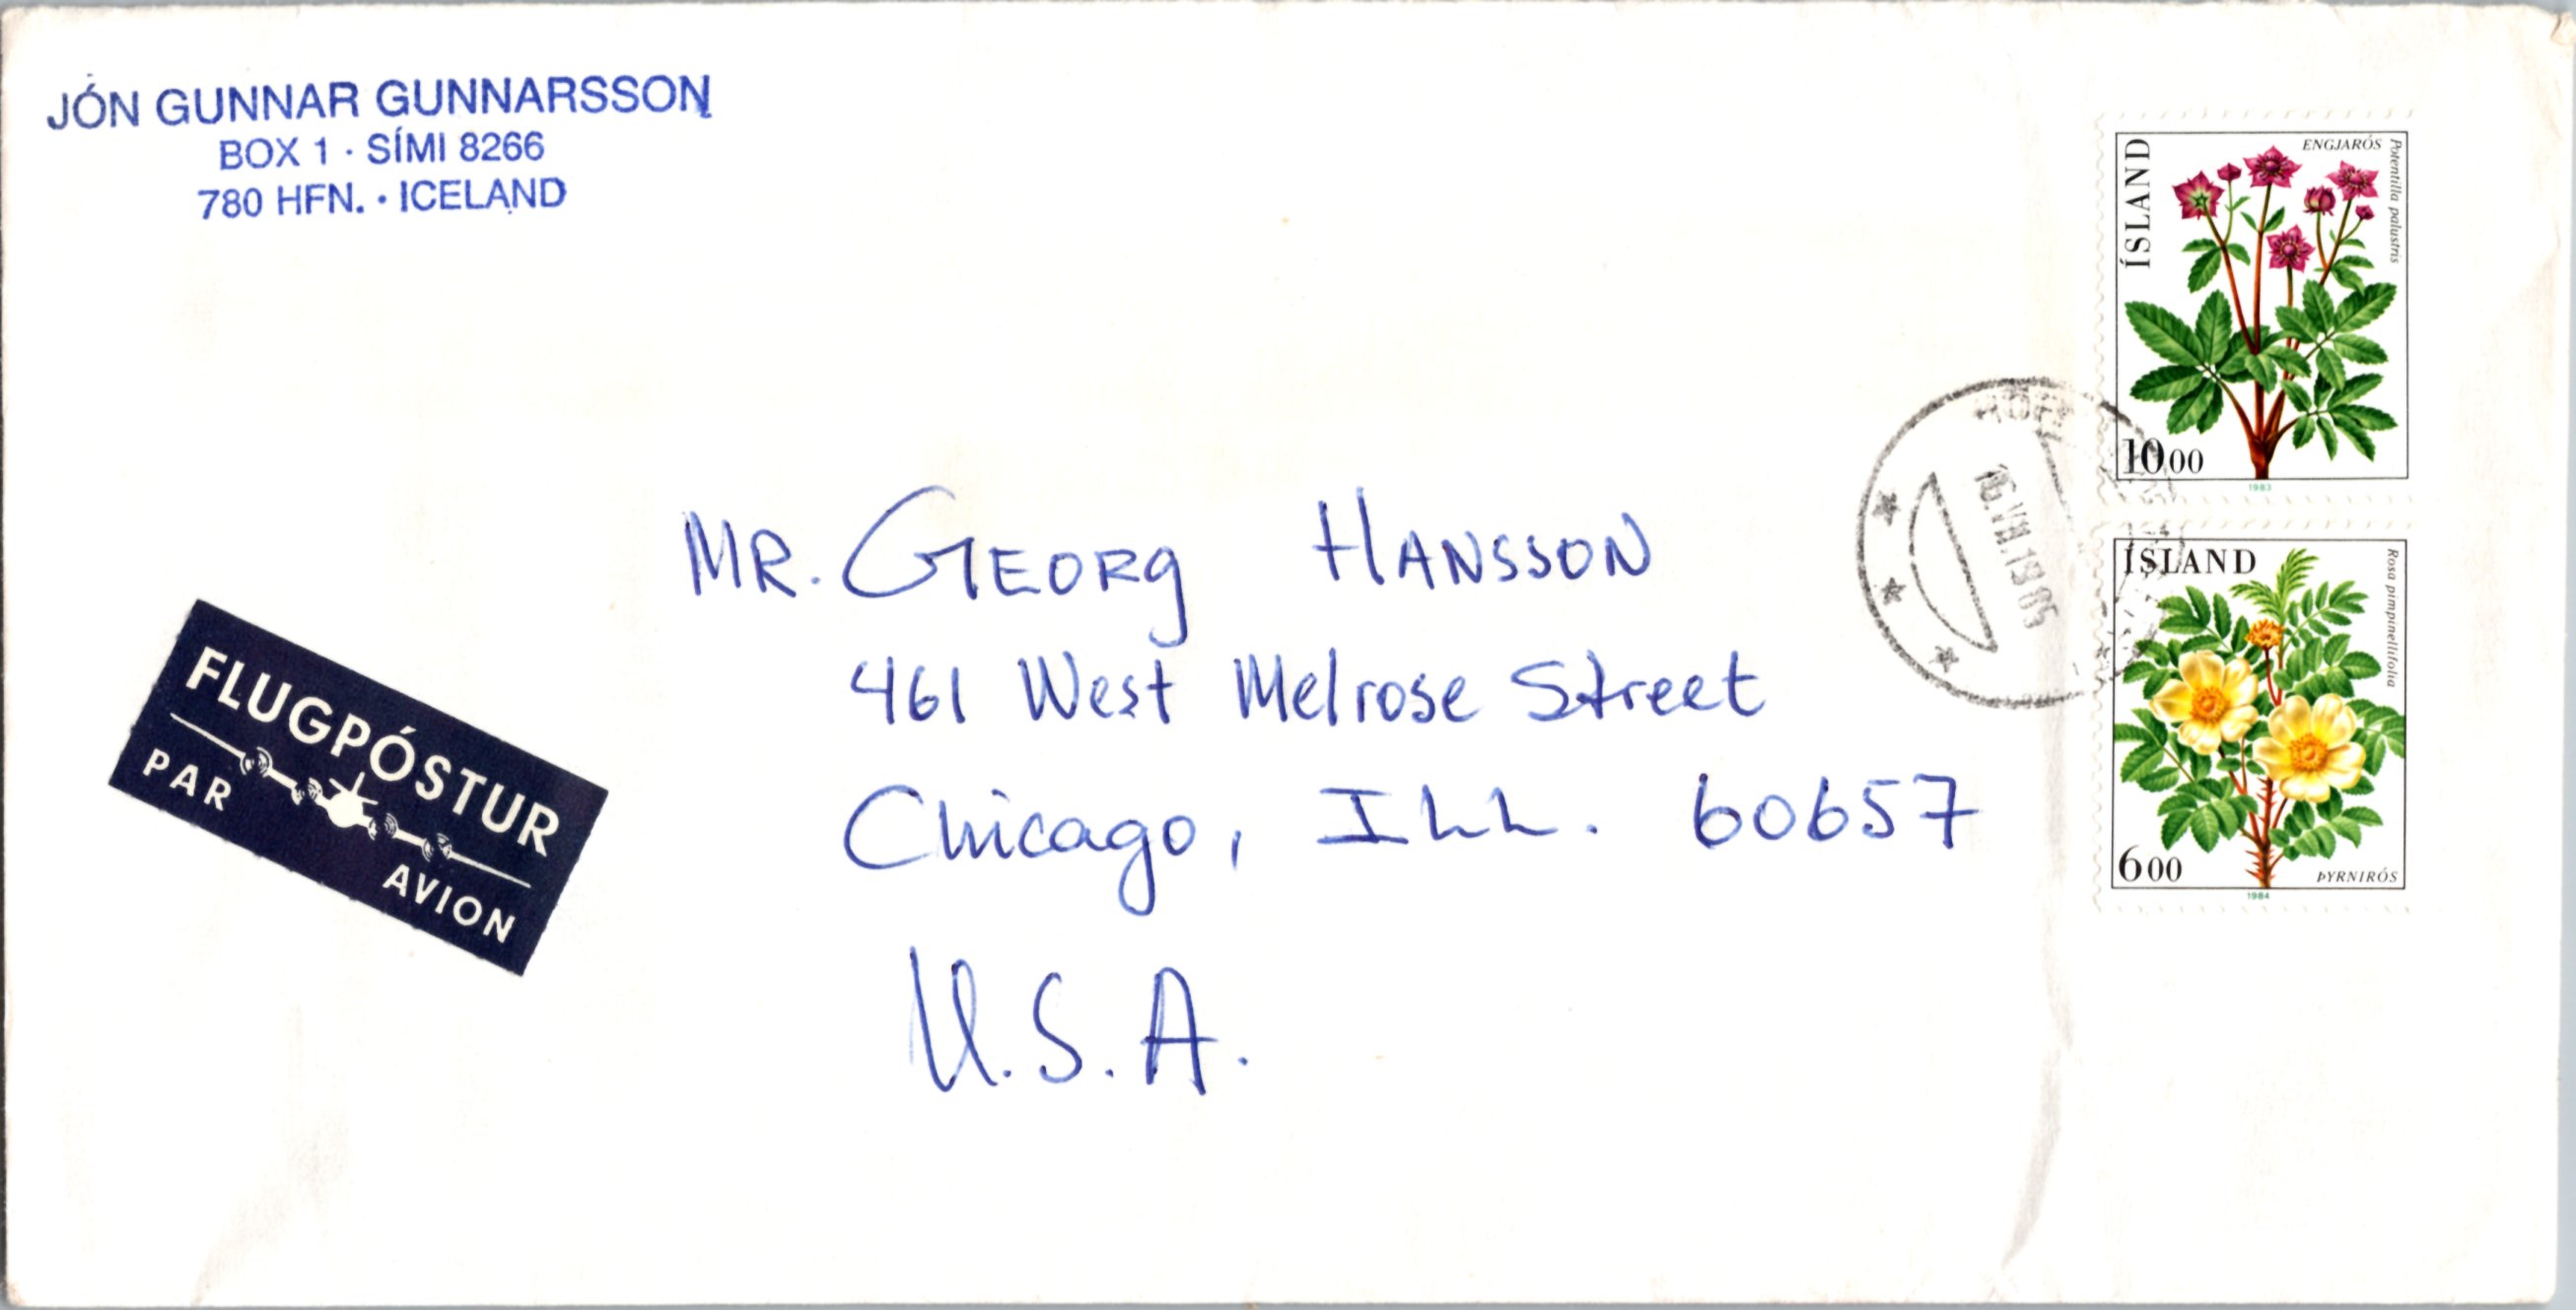 JÓN GUNNAR GUNNARSSON
BOX 1 · SÍMI 8266
780 HFN. · ICELAND
ÍSLAND
ENGJARÓS
Potentilla palustris
1000
1983
ÍSLAND
Rosa pimpinellifolia
600
ÞYRNIRÓS
1984
MR. GEORg HANSSON
461 West Melrose Street
Chicago, ILL. 60657
U.S.A.
FLUGPÓSTUR
PAR AVION